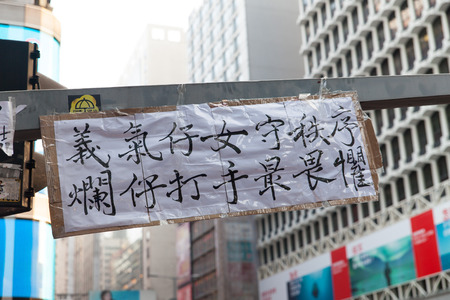 義氣仔女守秩序
爛仔打手最畏懼